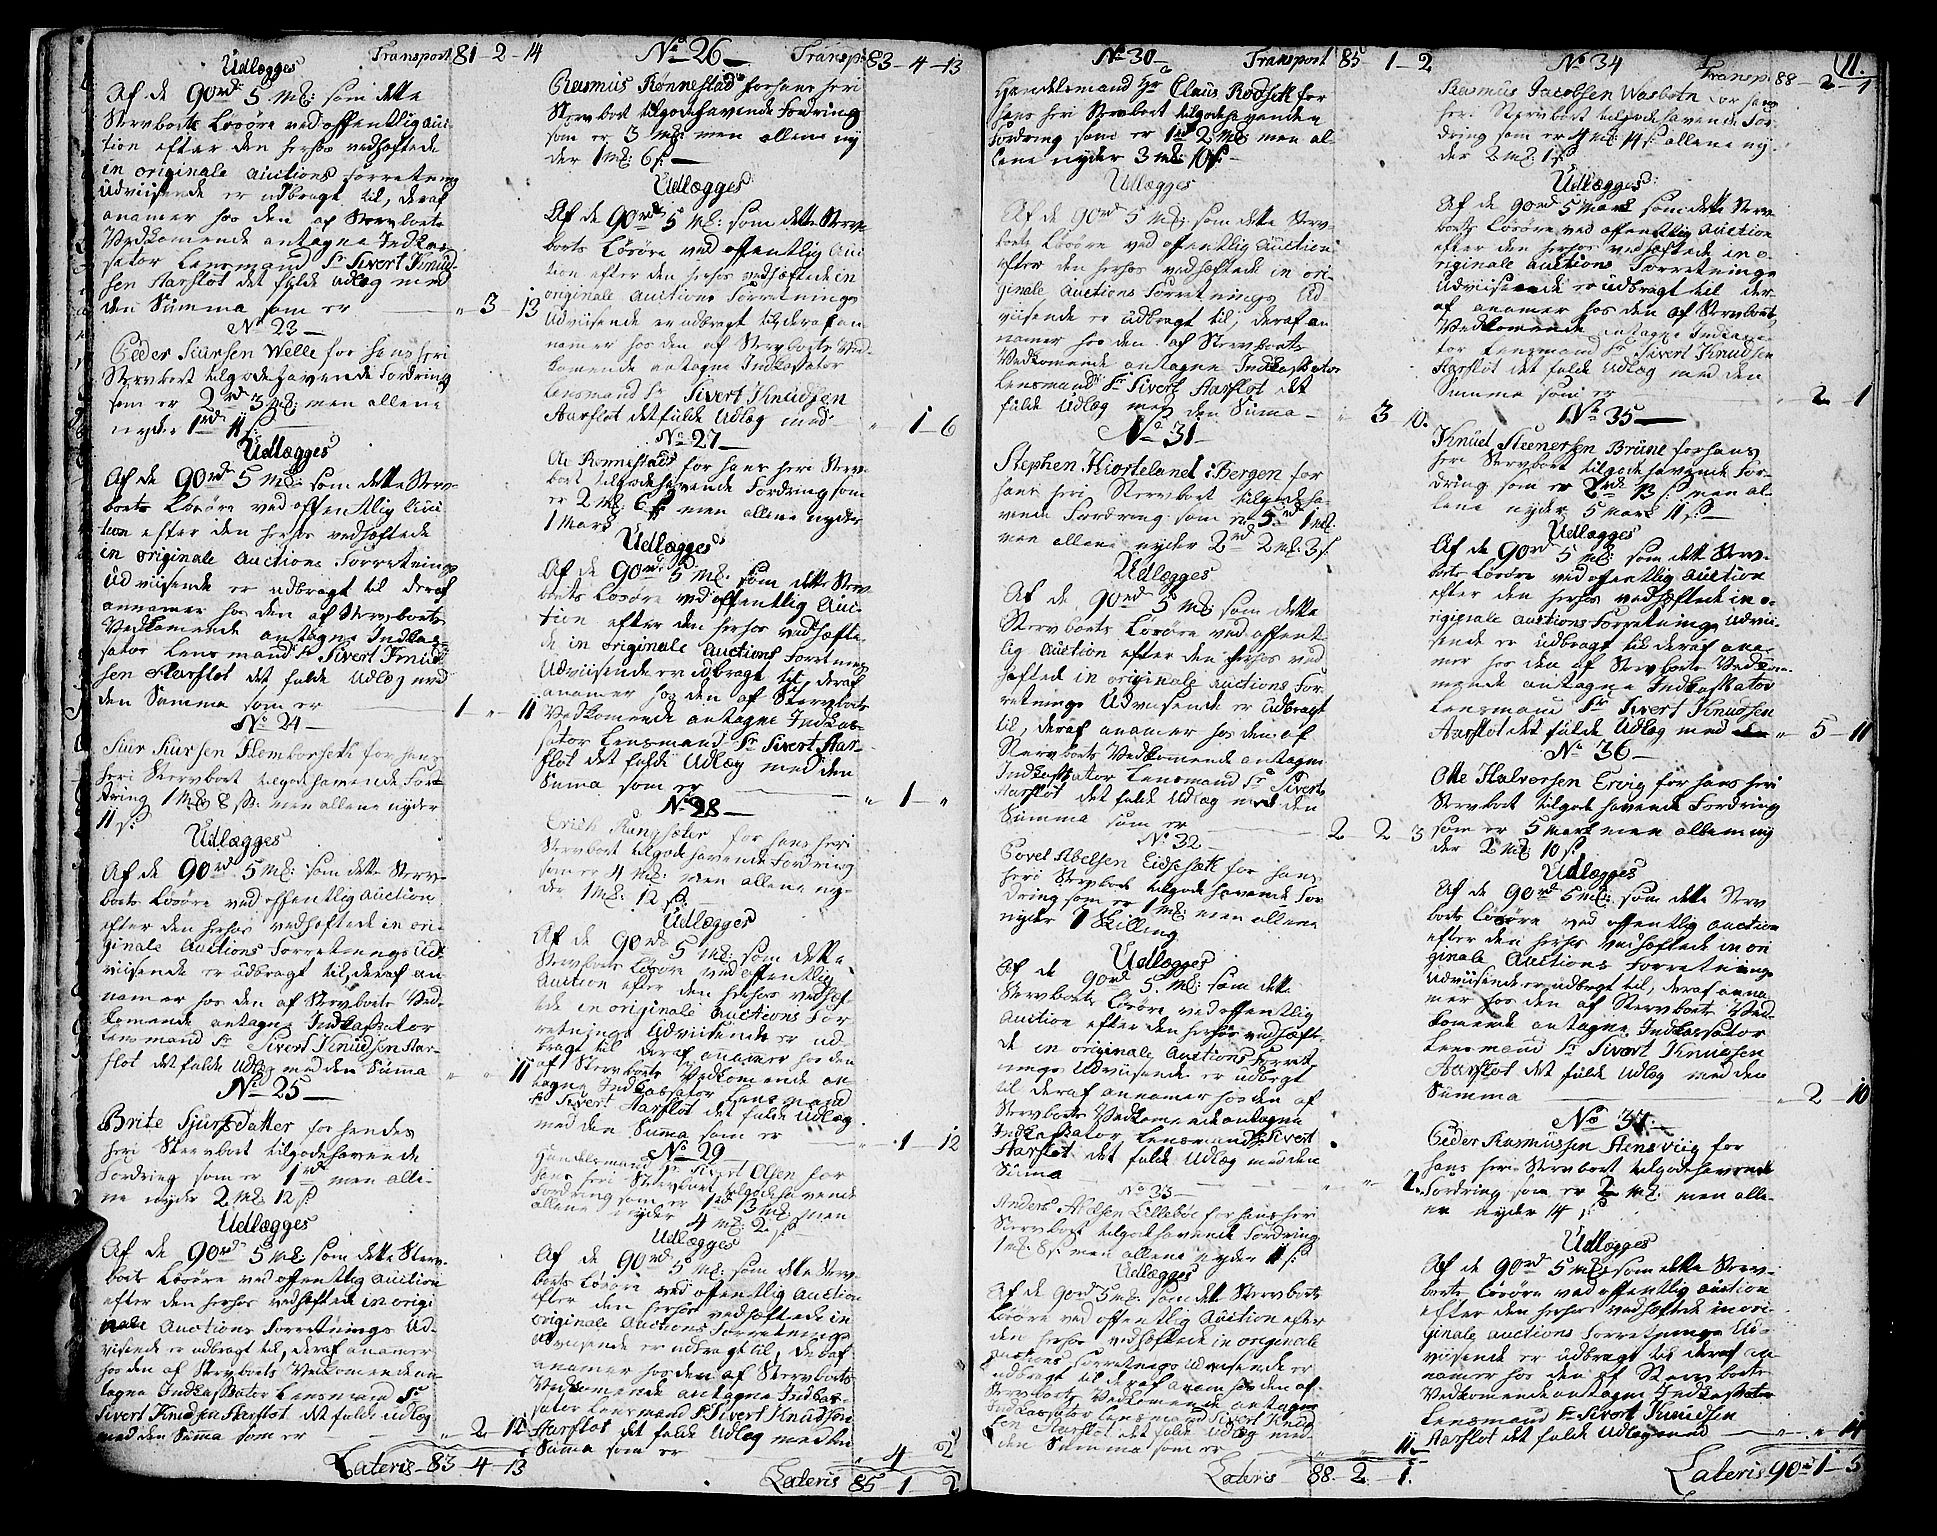 Transport 81-2-14
Udlægges
Af de 90rd 5 mk: som dette
Sterfboets Løsøre ved offentlig Auc-
tion efter den herhos vedhæftede
in originale Auctions Forretning
Udviisende er udbragt til, deraf
anamer hos den af Sterfboets
Vedkomende antagne Indkas-
sator Lensmand Sr Sivert Knud-
sen Aarflot det fulde Udlæg med
den Summa som er " 3 13
No 23
Peder Siursen Welle for hans heri
Sterfboet tilgodehavende Fordring
som er 2rd 3 mk: men allene
nyder 1rd 11 s:
Udlægges
Af de 90rd 5 mk: som dette Sterf-
boets Løsøre ved offentlig Auc-
tion efter den herhos vedhæftede
in originale Auctions Forretnings
Udviisende er udbragt til deraf
annamer hos den af Sterfboets
Vedkomende antagne Indkas-
sator Lensmand Sr Sivert Knud-
sen Aarflot det fulde Udlæg med
den Summa som er 1 - " - 11
No 24
Siur Siursen for hans
heri Sterfboet tilgodehavende For-
dring 1 mk 8 s: men allene nyder
11 s:
Udlægges
Af de 90rd 5 mk: som dette Sterf-
boets Løsøre ved offentlig Auction
efter den herhos vedhæftede in ori-
ginale Auctions Forretnings Ud-
viisende er udbragt til, deraf an
namer hos den af Sterfboets Ved-
komende antagne Indkassator
Lensmand Sr Sivert Knudsen Aar-
flot det fulde Udlæg med den Suma " " 11
No 25
Brite Sjurs Datter for hendes
heri Sterfboet tilgodehavende
Fordring som er 1rd men alle-
ne nyder 2 mk 12 s
Udlægges
Af de 90rd 5 mk: som dette Sterf-
boets Løsøre ved offentlig Auction
efter den herhos vedhæftede in origi-
nale Auctions Forretnings Ud-
viisende er udbragt til, deraf anamer
hos den af Sterfboets Vedkomende an-
tagne Indkassator Lensmand Sr
Sivert Knudsen Aarflot det fulde Udlæg
med den Suma som er " 2 12
Lateris 83-4-13
No 26 Transp: 83-4-13
Rasmus Rønnestad for hans heri
Sterfboet tilgodehavende Fordring
som er 3 mk men allene ny
der 1 mk: 6 s
Udlægges
Af de 90rd 5 mk: som dette Sterf-
boets Løsøre ved offentlig Auc
tion efter den herhos vedhæftede in
originale Auctions Forretnings
Udviisende er udbragt til, deraf an
namer hos den af Sterfboets Ved-
komende antagne Indkassator
Lensmand Sr Sivert Knudsen
Aarflot det fulde Udlæg med " 1-6
No 27
Rønnestad for hans heri Sterf-
boet tilgodehavende Fordring som
er 2 mk: 6 s men allene nyder
1 Mark
Udlægges
Af de 90rd 5 mk: som dette Sterf-
boets Løsøre ved offentlig Auc-
tion efter den herhos vedhæfte-
de in originale Auctions Forretnings
Udviisende er udbragt til, deraf
anamer hos den af Sterfboets
Vedkomende antagne Indkas-
sator Lensmand Sr Sivert Aar-
flot det fulde Udlæg med den
Suma som er " 1 - "
No 28
Erich for hans heri
Sterfboet tilgodehavende Fordring
som er 4 mk: men allene ny-
der 1 mk: 12 s:
Udlægges
Af de 90rd 5 mk: som dette
Sterfboets Løsøre ved offentlig
Auction efter den herhos vedhæf-
tede in originale Auctions For
retnings Udviisende er ud-
bragt til deraf anamer hos den
af Sterfboets Vedkomende an-
tagne Indkassator Lensmand
Sr Sivert Aarflot det fulde Udlæg
med den Suma som er " 1-12
No 29
Handelsmand Sr Sivert Olsen for
hans heri Sterfboet tilgodehavende
Fordring som er 1rd 3 mk men
allene nyder 4 mk: 2 s
Udlægges
Af de 90rd 5 mk: som dette Sterf-
boets Løsøre ved offentlig Auction
efter den herhos vedhæftede in
originale Auctions Forretnings
Udviisende er udbragt til, deraf
anamer hos den af Sterfboets
Vedkomende antagne Indkas-
sator Lensmand Sr Sivert Knudsen
Aarflot det fulde Udlæg med den
Suma som er " 4 2
Lateris 85-1-2
No 30 Transport 85 1-2
Handelsmand Hr Claus Rodseth for
hans heri Sterfboet tilgodehavende
Fordring som er 1rd 2 mk: men al-
lene nyder 3 mk: 10 s
Udlægges
Af de 90rd 5 mk: som dette Sterf-
boets Løsøre ved offentlig Auction
efter den herhos vedhæftede in ori-
ginale Auctions Forretnings Ud
viisende er udbragt til, deraf an
namer hos den af Sterfboets
Vedkomende antagne Indkassator
Lensmand Sr Sivert Aarflot det
fulde Udlæg med den Suma " 3-10.
No 31
Stephen Hiorteland i Bergen for
hans heri Sterfboet tilgodeha-
vende Fordring som er 5rd 1 mk
men allene nyder 2rd 2 mk: 3 s:
Udlægges
Af de 90rd 5 mk: som dette
Sterfboets Løsøre ved offent-
lig Auction efter den herhos ved
hæftede in originale Auctions For-
retnings Udviisende er udbragt
til, deraf anamer hos den af
Sterfboets Vedkomende antagne
Indkassator Lensmand Sr Sivert
Aarflot det fulde Udlæg med den
Summa som er 2 2 3
No 32
Povel Abelsen Eidseth for hans
heri Sterfboet tilgodehavende For
dring som er 1 mk: men allene
nyder 1 Skilling
Udlægges
Af de 90rd 5 mk: som dette
Sterfboets Løsøre ved offentlig
Auction efter den herhos vedhæfte-
de in originale Auctions Forret-
nings Udviisende er udbragt
til deraf anamer hos den af
Sterfboets Vedkomende antagne
Indkassator Lensmand Sr Sivert
Aarflot det fulde Udlæg med den
Suma " " 1.
No 33
Anders Lillebøe for hans heri
Sterfboet tilgodehavende Fordring
1 mk: 8 s: men allene nyder 11 s:
Udlægges
Af de 90rd 5 mk: som dette Sterfboets
Løsøre ved offentlig Auction efter
den herhos vedhæftede in originale
Auctions Forretnings Udviisende er
udbragt til deraf anamer hos den af
Sterfboets Vedkomende antagne
Indkassator Lensmand Sivert Knud
sen Aarflot det fulde Udlæg med
den Summa som er " " 11
Lateris 88. 2-1.
11.
No 34 Transp: 88-2-1
Rasmus Jacobsen Wasbotn for hans
heri Sterfboet tilgodehavende For-
dring som er 4 mk: 14 s: allene ny-
der 2 mk: 1 s
Udlægges
Af de 90rd 5 Mark som dette Sterf-
boets Løsøre ved offentlig Auction
efter den herhos vedhæftede in o-
riginale Auctions Forretnings
Udviisende er udbragt til der-
af anamer hos den af Sterfboets
Vedkomende antagne Indkassa-
tor Lensmand Sr Sivert Knudsen
Aarflot det fulde Udlæg med den
Summa som er 2 - 1
No 35
Knud Steenersen Brune for hans
heri Sterfboet tilgodehavende For-
dring som er 2rd 13 s: men al-
lene nyder 5 Mark 11 s:
Udlægges
Af de 90rd 5 mk: som dette Sterf-
boets Løsøre ved offentlig Auction
efter den herhos vedhæftede in o-
riginale Auctions Forretnings Udvii-
sende er udbragt til deraf ana-
mer hos den af Sterfboets Vedkom-
mende antagne Indkassator
Lensmand Sr Sivert Knudsen
Aarflot det fulde Udlæg med den " 5-11
No 36
Ole Halvorsen Ervig for hans heri
Sterfboet tilgodehavende Fordring
som er 5 Mark men allene ny
der 2 mk: 10 s
Udlægges
Af de 90rd 5 mk: som dette Sterf
boets Løsøre ved offentlig Auction
efter den herhos vedhæftede in ori
ginale Auctions Forretnings
Udviisende er udbragt til, deraf anna
mer hos den af Sterfboets Ved-
komende antagne Indkassator
Lensmand Sr Sivert Knudsen
Aarflot det fulde Udlæg med den
Summa " 2-10
No 37
Peder Rasmussen Stensviig for
hans heri Sterfboet tilgodehavende
Fordring som er 2 mk: men alle-
ne nyder 14 s
Udlægges
Af de 90rd 5 mk: som dette Sterf-
boets Løsøre ved offentlig Auction
efter den herhos vedhæftede in ori-
ginale Auctions Forretnings Ud-
viisende er udbragt til deraf an-
namer hos den af Sterfboets
Vedkomende antagne Indkassator
Lensmand Sr Sivert Knudsen
Aarflot det fulde Udlæg med " " 14
Lateris 90rd-1-5